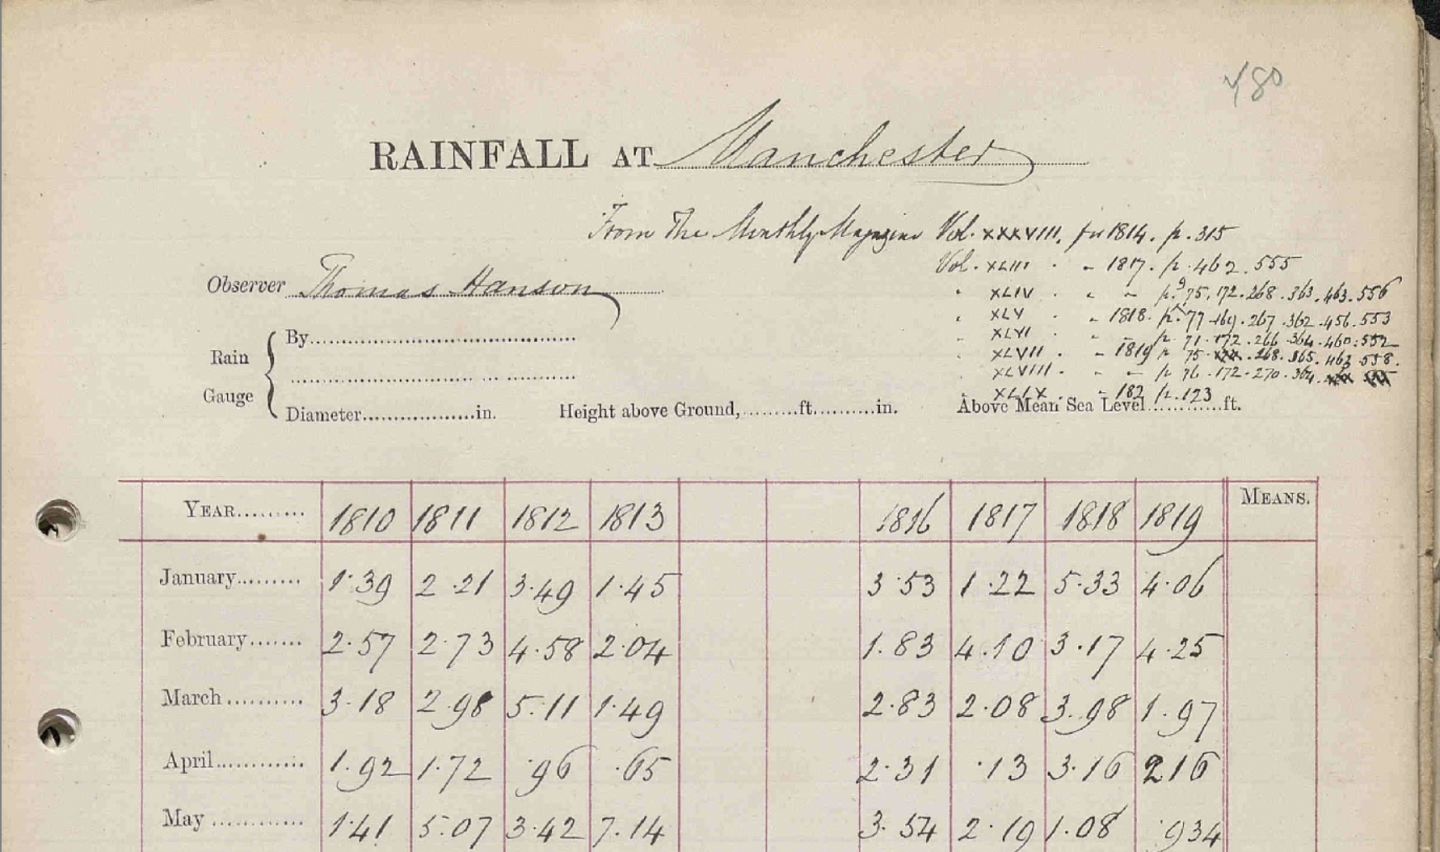 480
RAINFALL AT Manchester
From The Monthly Magazine Vol. XXXVIII. for 1814. p. 315
Vol. XLIII . " 1817. p. 462. 555
Observer Thomas Hanson
" XLIV . " " p. 75. 172. 268. 363. 463. 556
" XLV . " 1818. p. 77. 169. 267. 362. 456. 553
" XLVI . " p. 71. 172. 266. 364. 460. 552
" XLVII . " 1819 p. 75. 268. 365. 463. 558.
" XLVIII . " " p. 76. 172. 270. 364.
" XLIX . " 182 p. 123
By
Rain
Gauge
Diameter..................in. Height above Ground,.........ft..........in. Above Mean Sea Level............ft.
YEAR......... 1810 1811 1812 1813 1816 1817 1818 1819 MEANS.
January......... 1.39 2.21 3.49 1.45 3.53 1.22 5.33 4.06
February....... 2.57 2.73 4.58 2.04 1.83 4.10 3.17 4.25
March.......... 3.18 2.98 5.11 1.49 2.83 2.08 3.98 1.97
April............ 1.92 1.72 .96 .65 2.31 .13 3.16 216
May ............ 1.41 5.07 3.42 7.14 3.54 2.19 1.08 .934